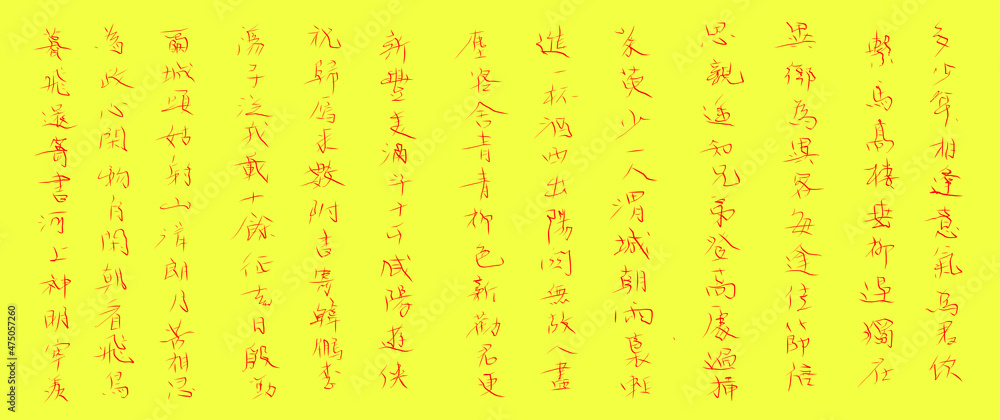 多少年相逢意氣為君飲
繫馬高樓垂柳邊獨在
異鄉為異客每逢佳節倍
思親遙知兄弟登高處遍插
茱萸少一人渭城朝雨裛輕
進一杯酒西出陽關無故人盡
塵客舍青青柳色新勸君更
新豐美酒斗十千咸陽遊俠
祝歸雁求數附書寄韓鵬李
蕩子從戎載十餘征去日殷勤
爾城頭姑射山清朗月苦相思
為政心閑物自閑朝看飛鳥
暮飛還寄書河上神明宰羨
Adobe Stock | #475057260